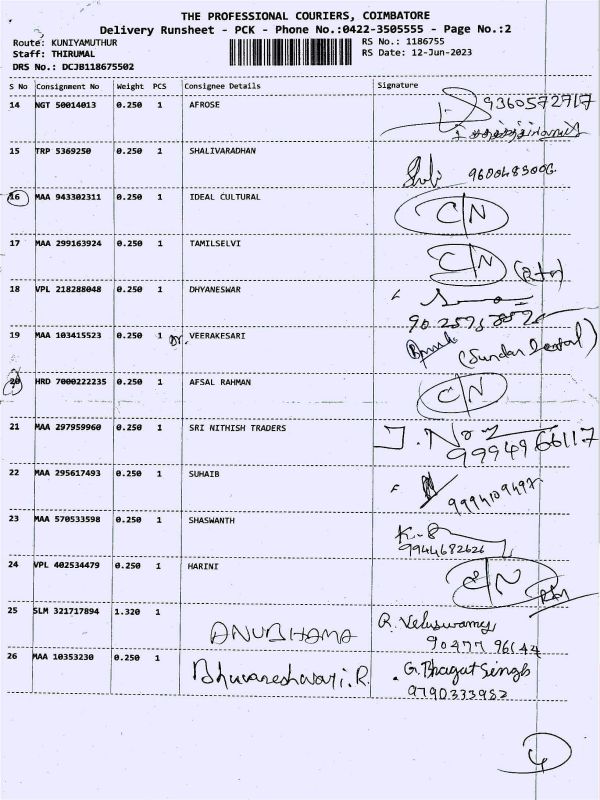 THE PROFESSIONAL COURIERS, COIMBATORE
Delivery Runsheet - PCK - Phone No.:0422-3505555 - Page No.:2
Route: KUNIYAMUTHUR RS No.: 1186755
Staff: THIRUMAL RS Date: 12-Jun-2023
DRS No.: DCJB118675502
S No Consignment No Weight PCS Consignee Details Signature
14 NGT 50014013 0.250 1 AFROSE 9360572717
15 TRP 5369250 0.250 1 SHALIVARADHAN
16 MAA 943302311 0.250 1 IDEAL CULTURAL C/N
17 MAA 299163924 0.250 1 TAMILSELVI C/N
18 VPL 218288048 0.250 1 DHYANESWAR
19 MAA 103415523 1 Dr. VEERAKESARI (Sundar Dental)
20 HRD 7000222235 0.250 1 AFSAL RAHMAN C/N
21 MAA 297959960 0.250 1 SRI NITHISH TRADERS 9994966117
22 MAA 295617493 0.250 1 SUHAIB
23 MAA 570533598 0.250 1 SHASWANTH 9944682626
24 VPL 402534479 0.250 1 HARINI C/N
25 SLM 321717894 1.320 1 ANUBHAMA R. Veluswamy
90477 96144
26 MAA 10353230 0.250 1 Bhuvaneshwari.R. G. Bhagat Singh
9790333982